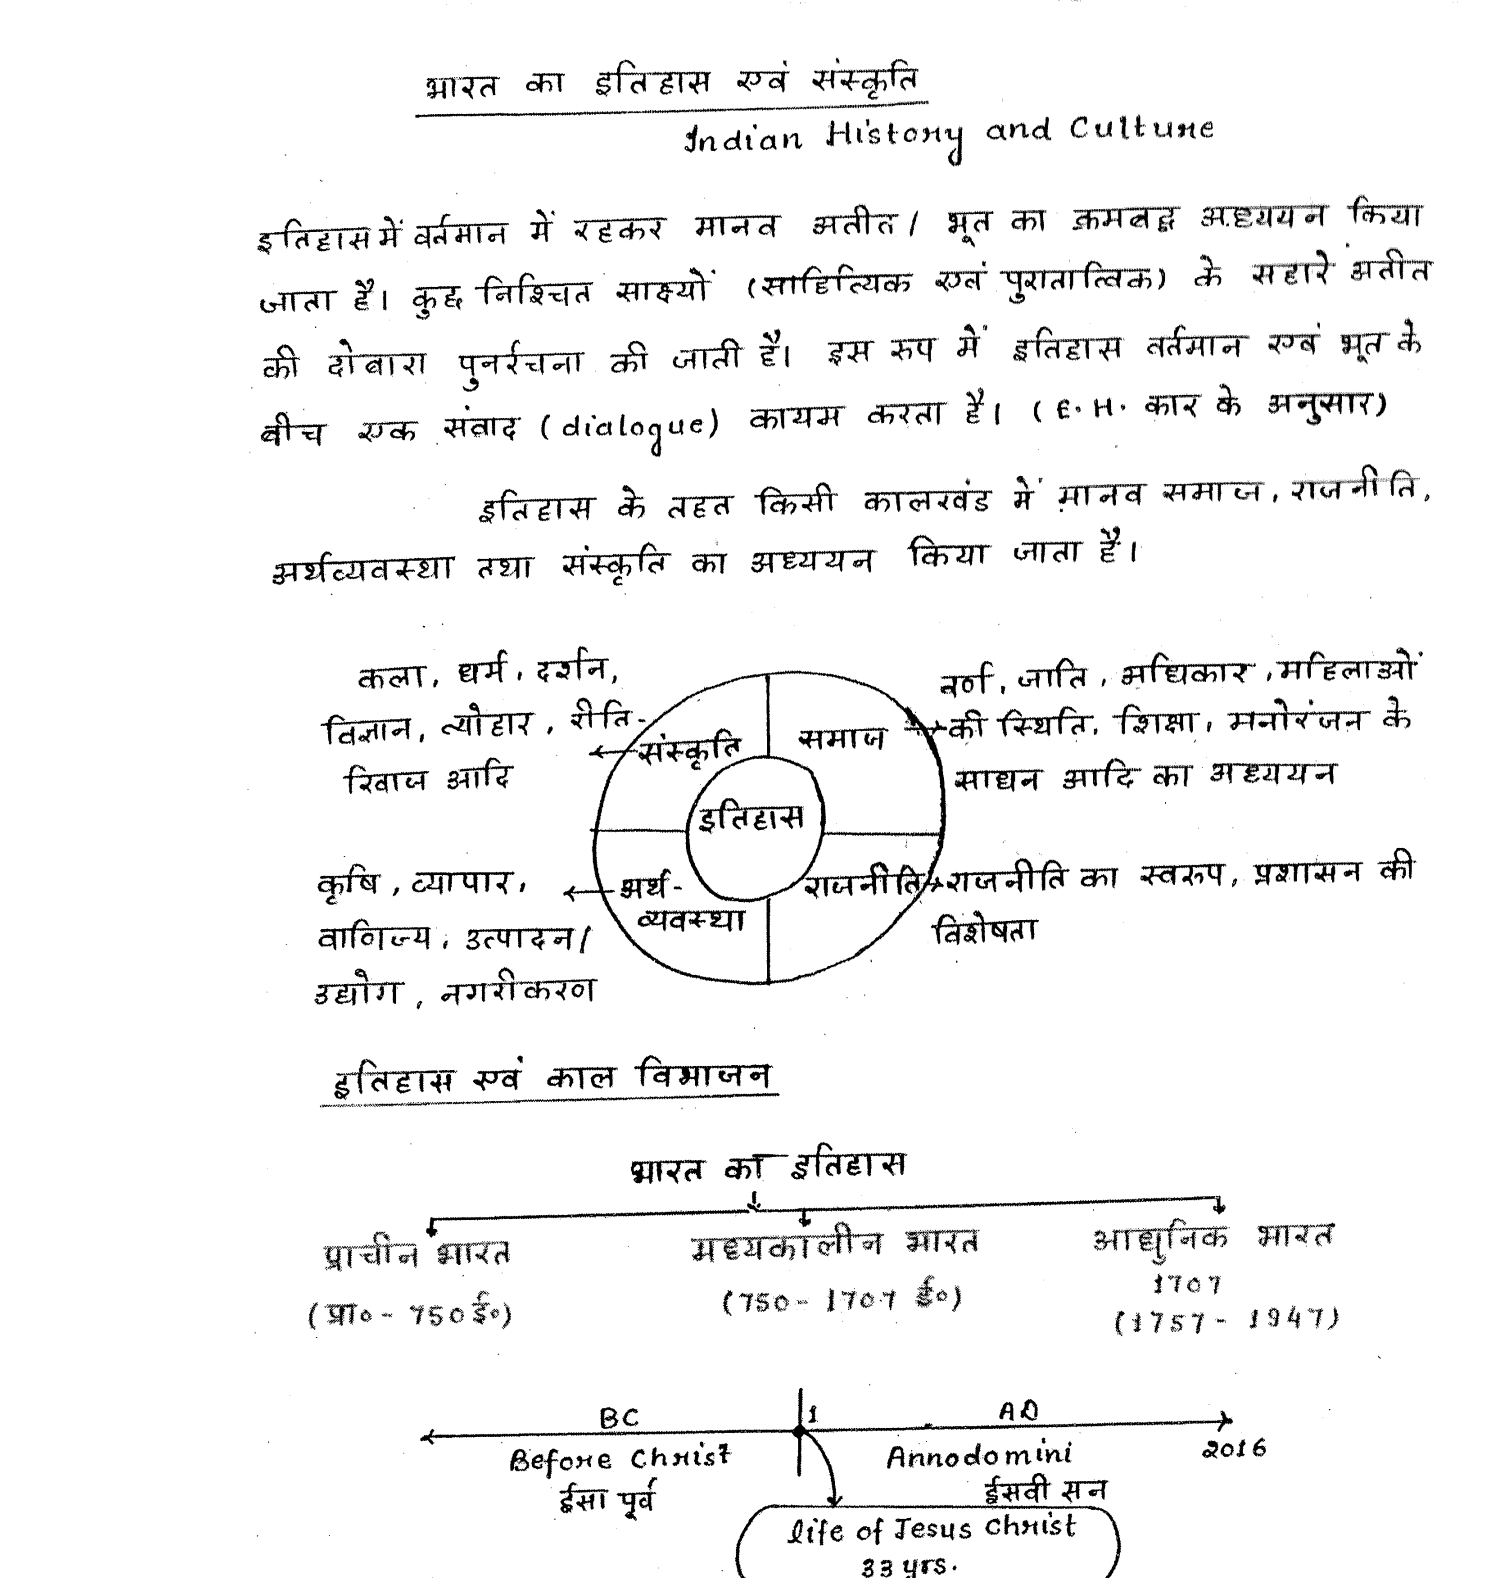 भारत का इतिहास एवं संस्कृति
Indian History and Culture
इतिहास में वर्तमान में रहकर मानव अतीत / भूत का क्रमबद्ध अध्ययन किया
जाता है। कुछ निश्चित साक्ष्यों (साहित्यिक एवं पुरातात्विक) के सहारे अतीत
की दोबारा पुनर्रचना की जाती है। इस रुप में इतिहास वर्तमान एवं भूत के
बीच एक संवाद (dialogue) कायम करता है। (E.H. कार के अनुसार)
इतिहास के तहत किसी कालखंड में मानव समाज, राजनीति,
अर्थव्यवस्था तथा संस्कृति का अध्ययन किया जाता है।
कला, धर्म, दर्शन,
विज्ञान, त्योहार, रीति-
रिवाज आदि
संस्कृति
समाज
वर्ण, जाति, अधिकार, महिलाओं
की स्थिति, शिक्षा, मनोरंजन के
साधन आदि का अध्ययन
इतिहास
कृषि, व्यापार,
वाणिज्य, उत्पादन/
उद्योग, नगरीकरण
अर्थ-
व्यवस्था
राजनीति
राजनीति का स्वरुप, प्रशासन की
विशेषता
इतिहास एवं काल विभाजन
भारत का इतिहास
प्राचीन भारत मध्यकालीन भारत आधुनिक भारत
1707
(प्रा० - 750 ई०) (750 - 1707 ई०) (1757 - 1947)
BC 1 AD
Before Christ Annodomini 2016
ईसा पूर्व ईसवी सन
life of Jesus Christ
33 yrs.